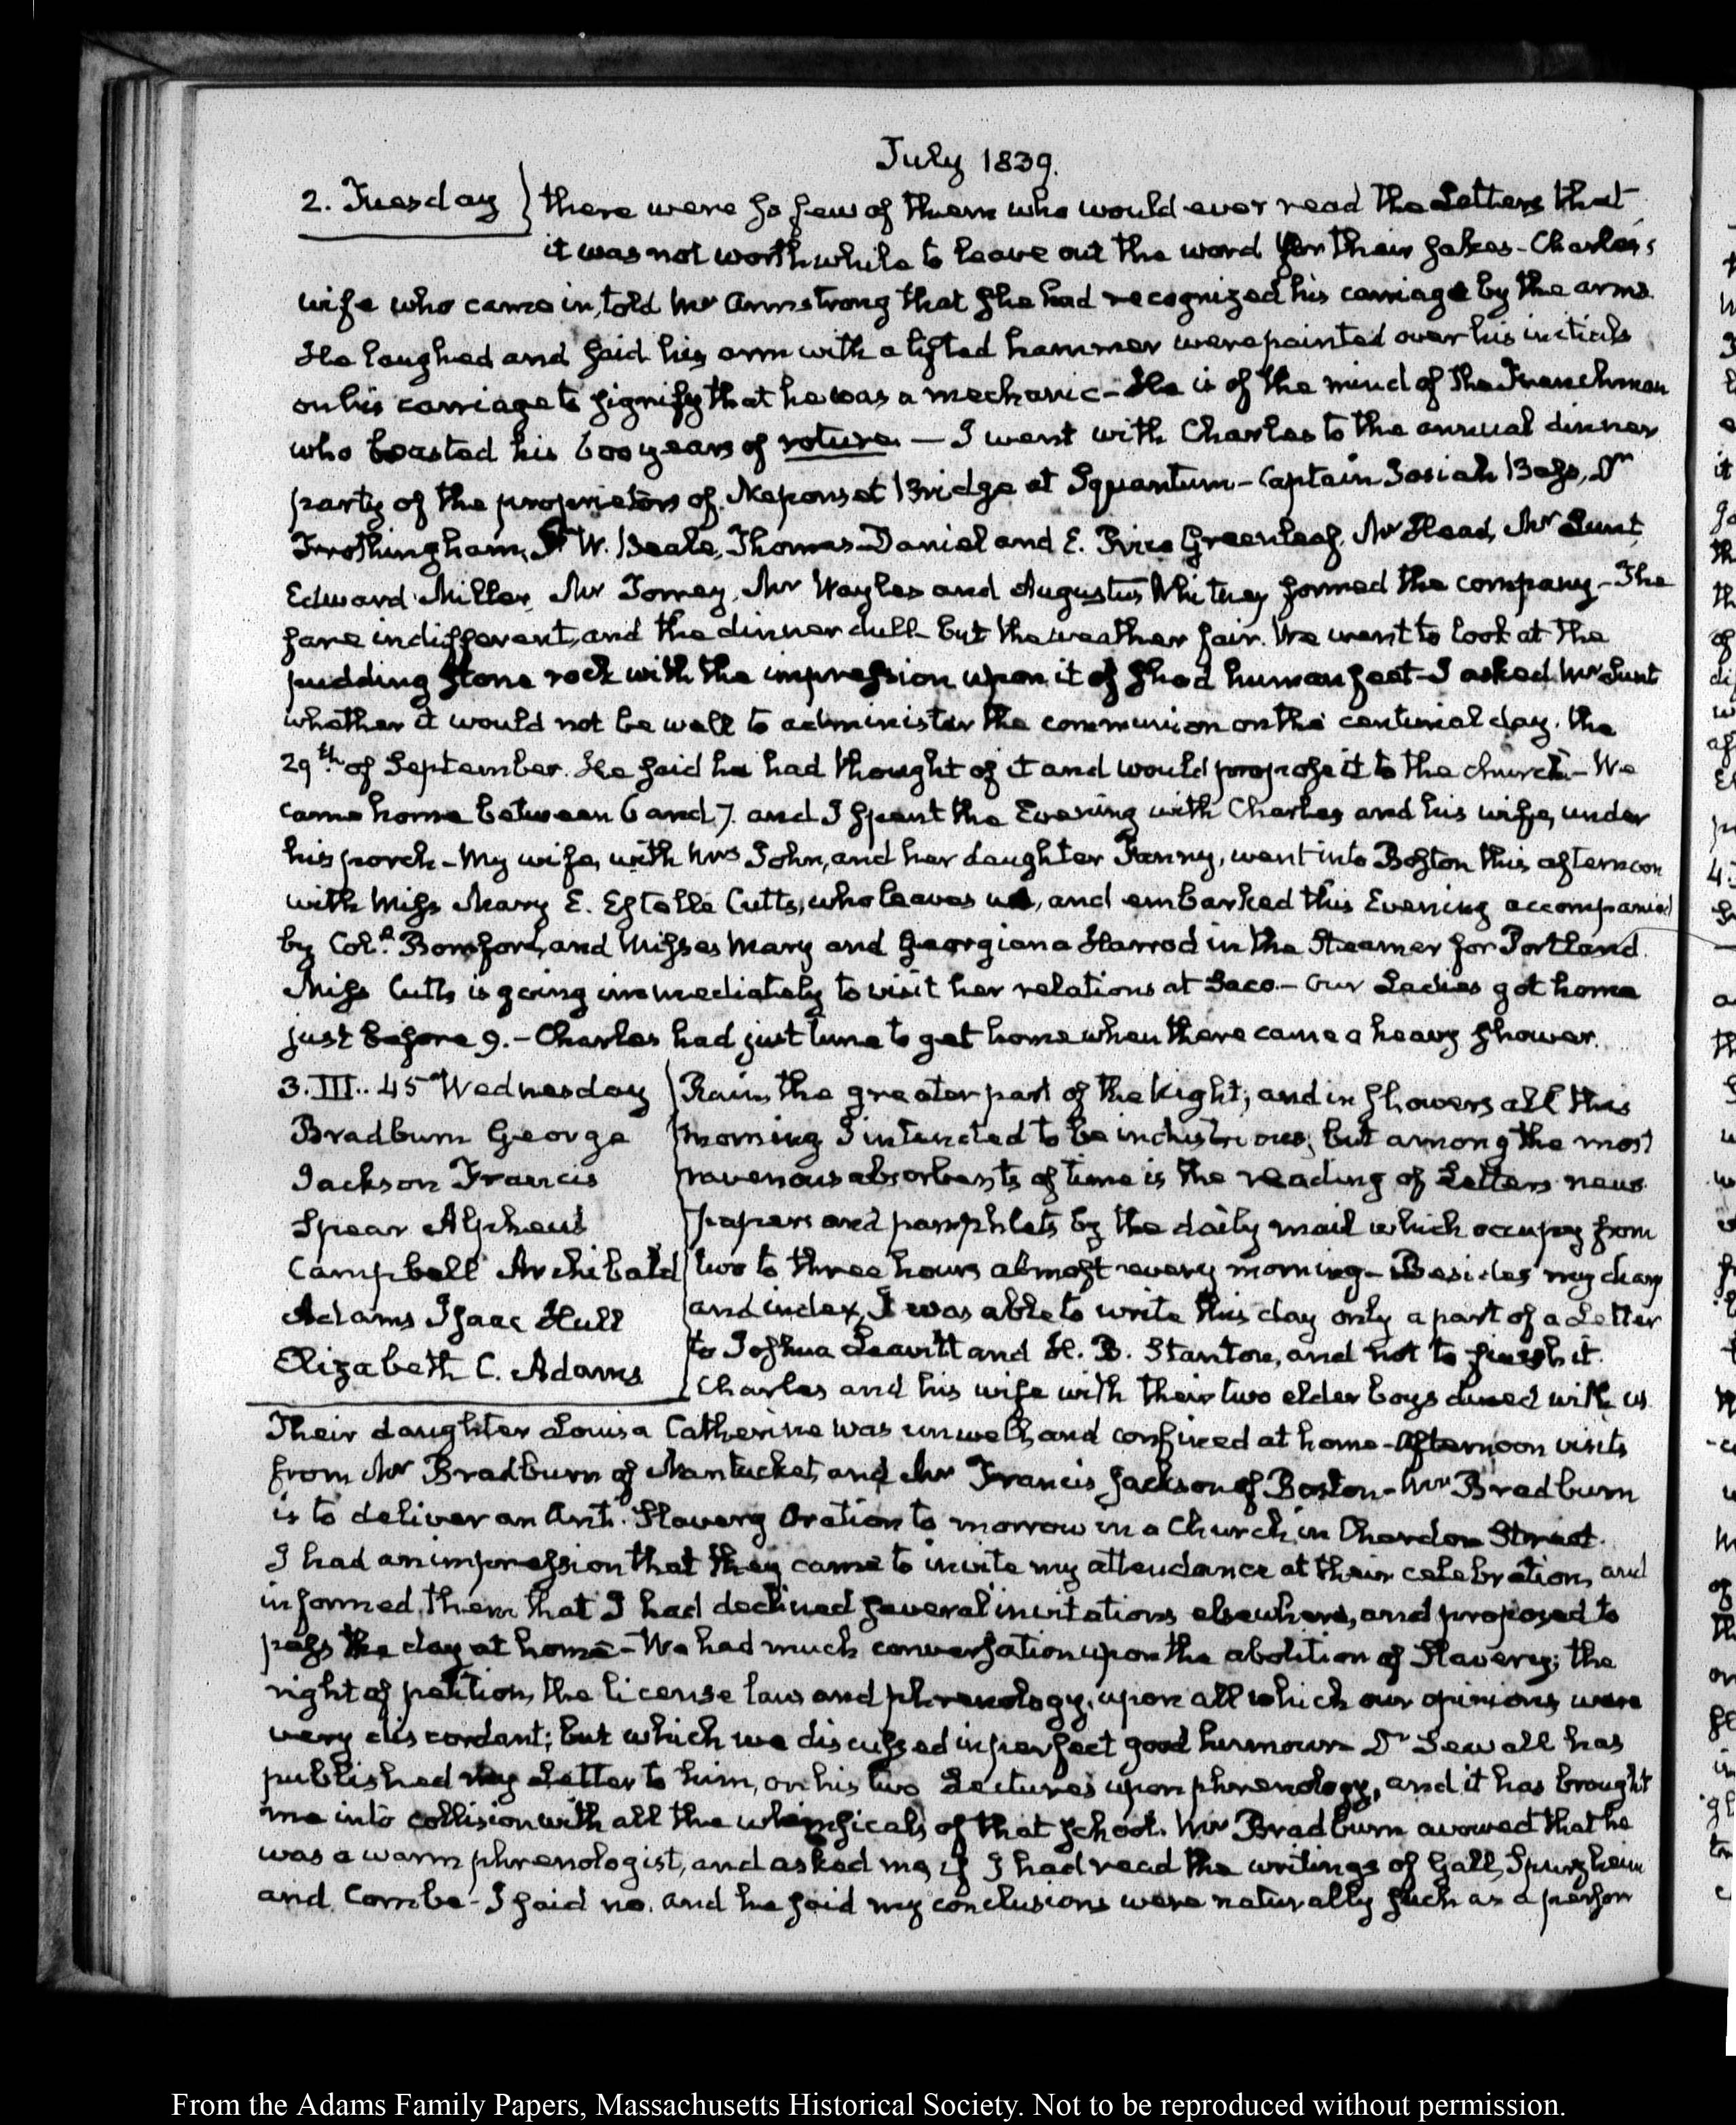 July 1839.
2. Tuesday } there were so few of them who would ever read the Letters that
it was not worth while to leave out the word for their sakes - Charles's
wife who came in, told Mr Armstrong that she had recognized his carriage by the arms.
He laughed and said his arm with a lifted hammer were painted over his initials
on his carriage to signify that he was a mechanic - He is of the mind of the Frenchman
who boasted his 600 years of roture. — I went with Charles to the annual dinner
party of the proprietors of Neponset Bridge at Squantum - Captain Josiah Bass, Dr
Frothingham, W. Beale, Thomas Daniel and E. Price Greenleaf, Mr Head, Mr Lunt
Edward Miller, Mr Torrey, Mr Wayles and Augustus Whitney formed the company - The
fare indifferent, and the dinner dull but the weather fair. We went to look at the
pudding stone rock with the impression upon it of shod human feet - I asked Mr Lunt
whether it would not be well to administer the communion on the centurial day. the
29th of September. He said he had thought of it and would propose it to the church - We
came home between 6 and 7. and I spent the Evening with Charles and his wife, under
his porch - My wife, with Mrs John, and her daughter Fanny, went into Boston this afternoon
with Miss Mary E. Estelle Cutts, who leaves us, and embarked this Evening accompanied
by Coll. Bomford, and Misses Mary and Georgiana Harrod in the Steamer for Portland.
Miss Cutts is going immediately to visit her relations at Saco - Our Ladies got home
just before 9. - Charles had just time to get home when there came a heavy shower.
3. III.. 45 Wednesday
Bradburn George
Jackson Francis
Spear Alpheus
Campbell Archibald
Adams Isaac Hull
Elizabeth C. Adams
Rain, the greater part of the Night; and in showers all this
morning I intended to be industrious; but among the most
ravenous absorbents of time is the reading of Letters news
papers and pamphlets by the daily mail which occupy from
two to three hours almost every morning - Besides my diary
and index, I was able to write this day only a part of a Letter
to Joshua Leavitt and H. B. Stanton, and not to finish it.
Charles and his wife with their two elder boys dined with us
Their daughter Louisa Catherine was unwell, and confined at home - Afternoon visits
from Mr Bradburn of Nantucket, and Mr Francis Jackson of Boston - Mr Bradburn
is to deliver an Anti-Slavery Oration to morrow in a Church, in Chardon Street.
I had an impression that they came to invite my attendance at their celebration, and
informed them that I had declined several invitations elsewhere, and proposed to
pass the day at home - We had much conversation upon the abolition of Slavery; the
right of petition, the license law and phrenology, upon all which our opinions were
very discordant; but which we discussed in perfect good humour - Dr Sewall has
published my Letter to him, on his two Lectures upon phrenology, and it has brought
me into collision with all the whimsicals of that school. Mr Bradburn avowed that he
was a warm phrenologist, and asked me, if I had read the writings of Gall, Spurzheim
and Combe - I said no. and he said my conclusions were naturally such as a person
From the Adams Family Papers, Massachusetts Historical Society. Not to be reproduced without permission.